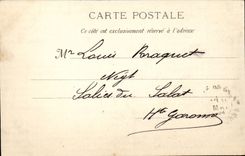 CARTE POSTALE
Ce côté est exclusivement réservé à l'adresse
Mr Louis Braquet
Négt
Salies du Salat
Hte Garonne